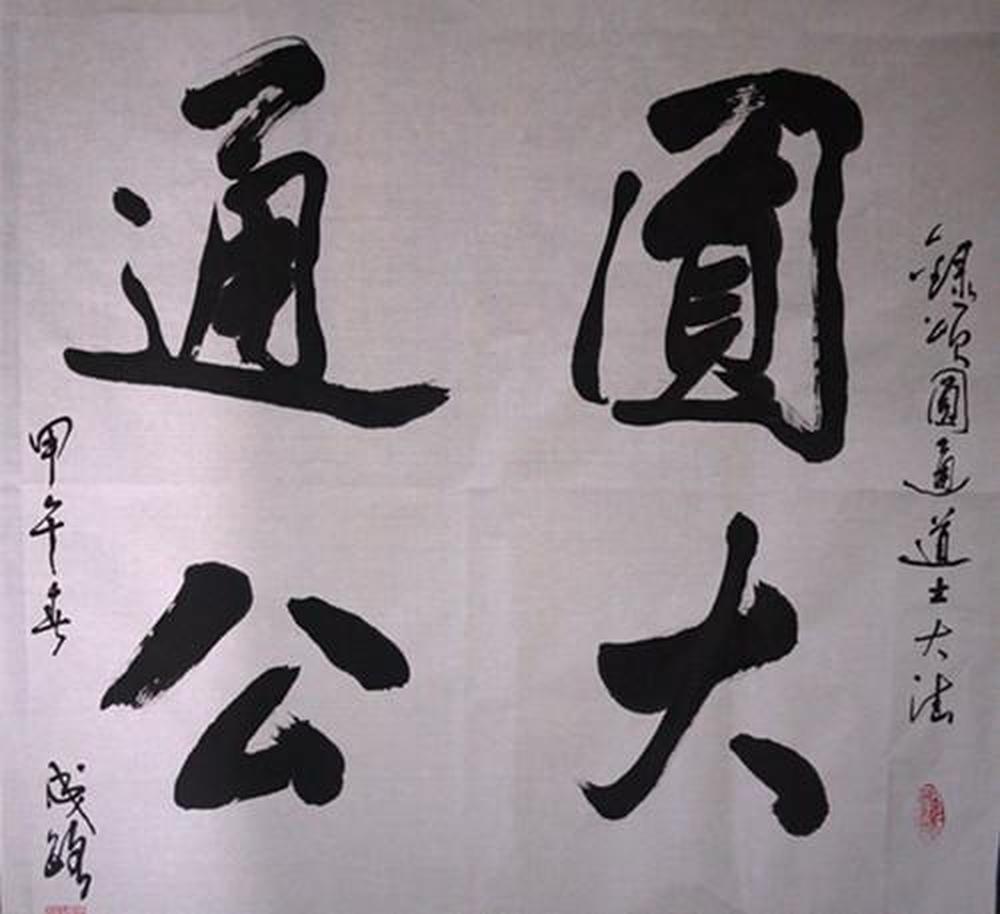 錄頌圓通道士大法
圓大
通公
甲午春